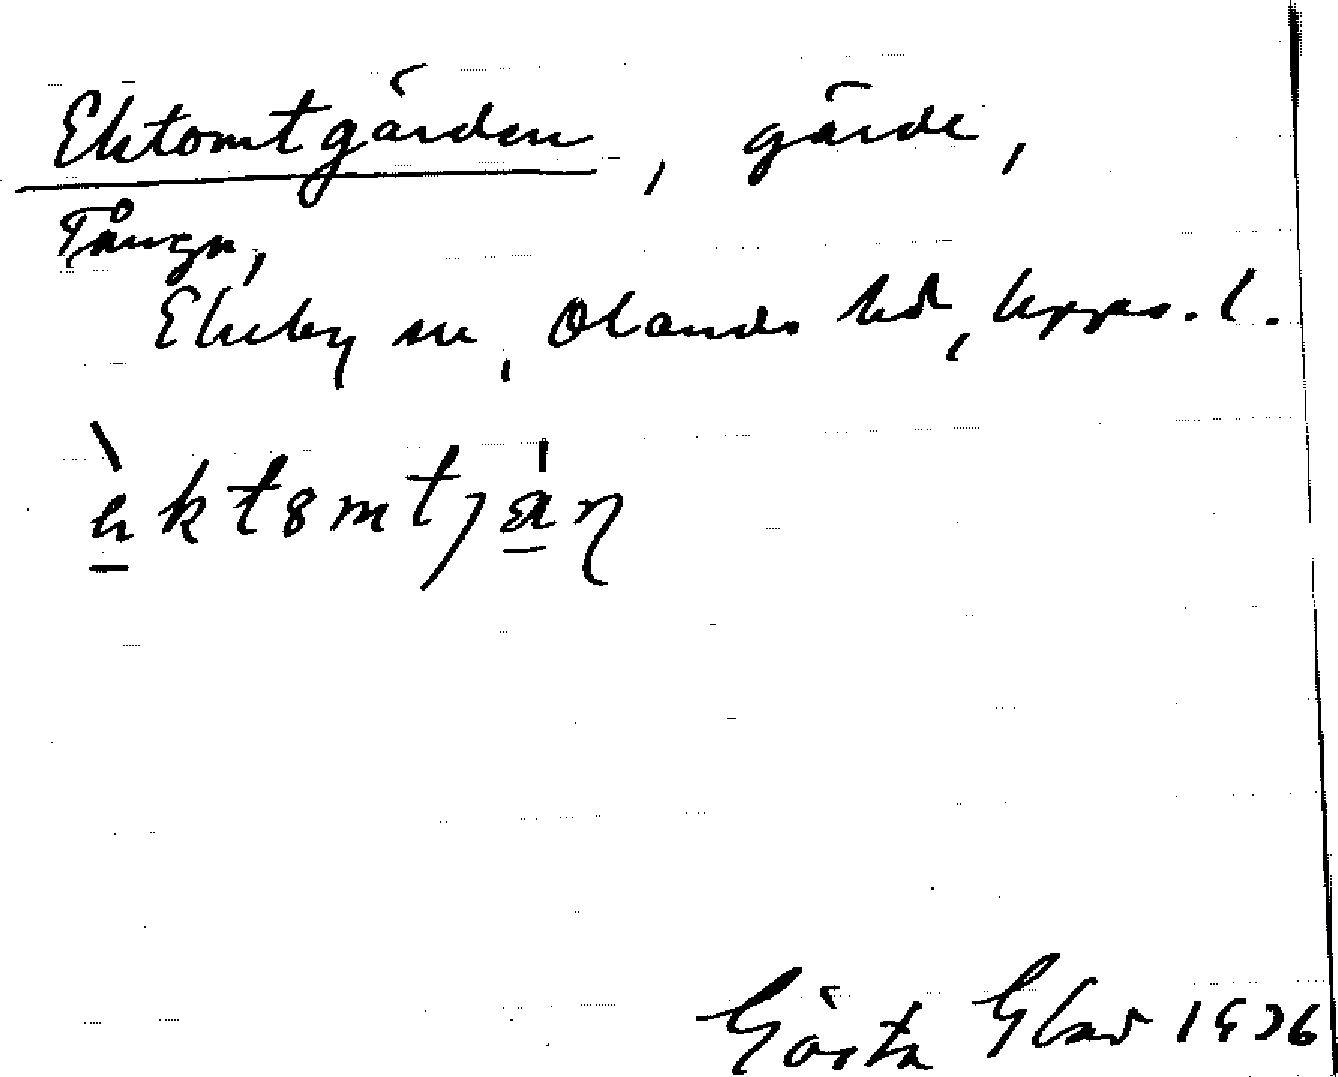 Ektomtgärden, gärde,
Tånga,
Ekeby sn, Olands hd, Upps. l.
Gösta Glad 1936